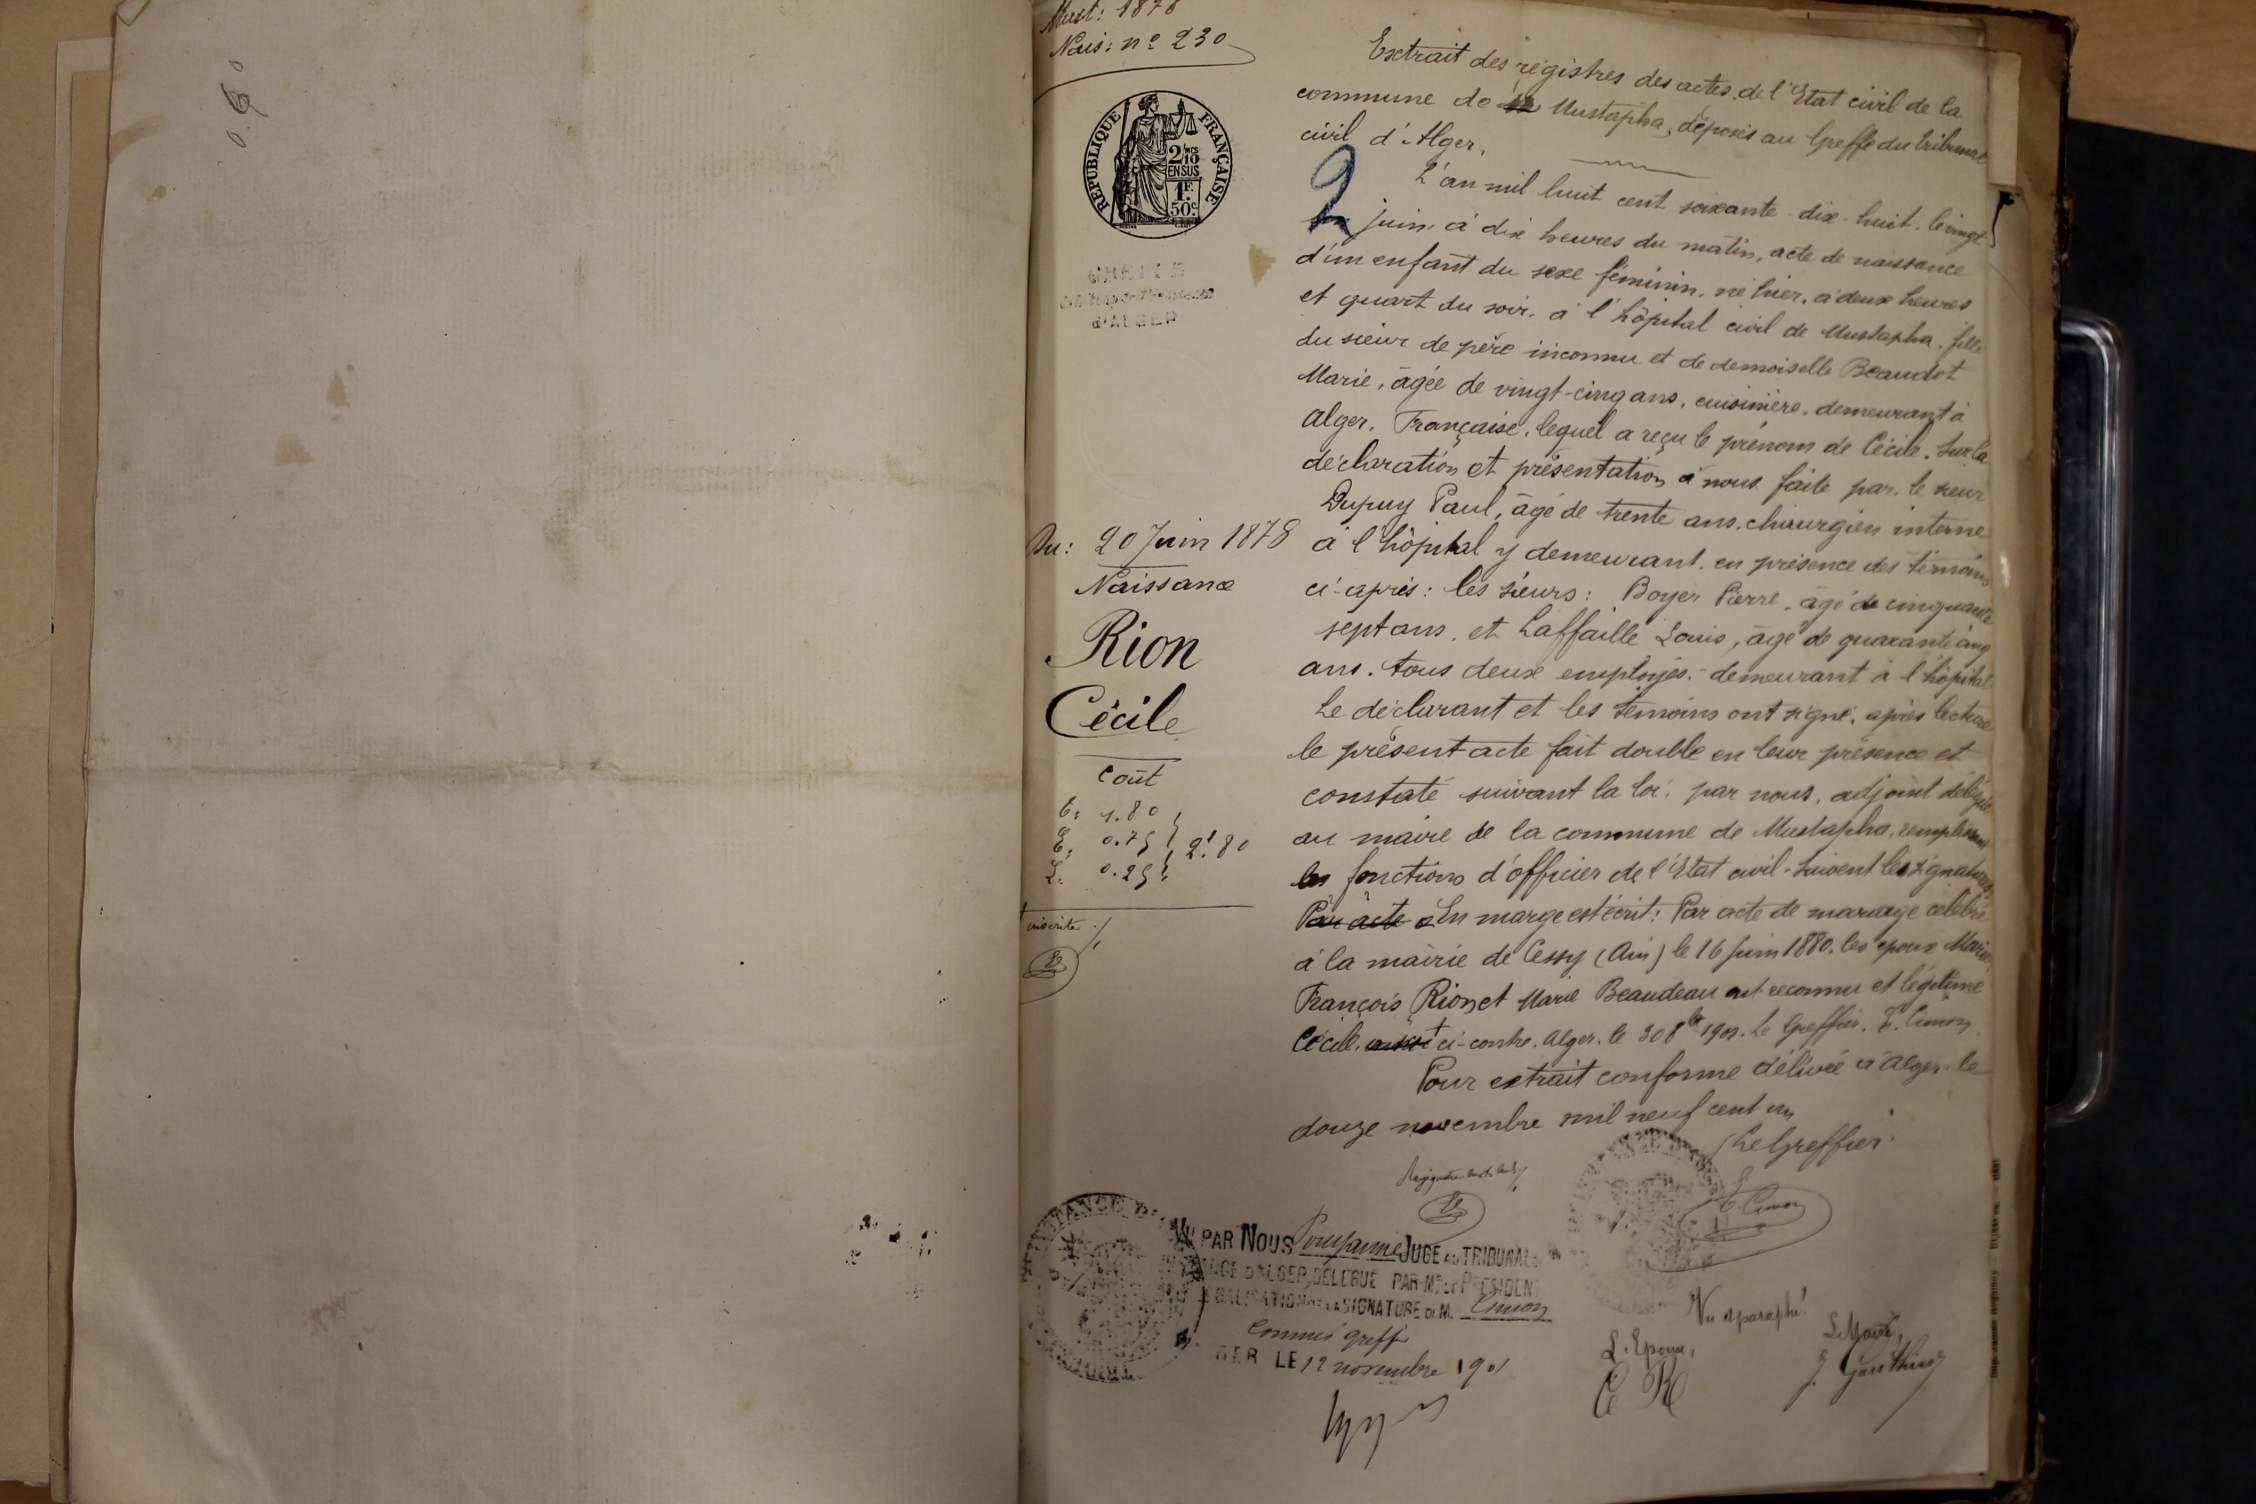 Must: 1878
Nais: nº 230
RÉPUBLIQUE FRANÇAISE
2/10 EN SUS
1F. 50c.
Du: 20 Juin 1878
Naissance
Rion
Cécile
Coût
1.80
0.75 2f.80
0.25
Extrait des régistres des actes de l'Etat civil de la
commune de Mustapha, déposés au Greffe du tribunal
civil d'Alger.
L'an mil huit cent soixante-dix-huit. le vingt
2
juin à dix heures du matin, acte de naissance
d'un enfant du sexe féminin, né hier, à deux heures
et quart du soir, à l'hôpital civil de Mustapha, fille
du sieur de père inconnu et de demoiselle Beaudet
Marie, âgée de vingt-cinq ans, cuisinière, demeurant à
Alger, Française, lequel a reçu le prénom de Cécile. Sur la
déclaration et présentation à nous faite par le sieur
Dupuy Paul, âgé de trente ans, chirurgien interne
à l'hôpital y demeurant, en présence des témoins
ci-après: les sieurs: Boyer Pierre, âgé de cinquante
sept ans, et Laffaille Louis, âgé de quarante cinq
ans. tous deux employés, demeurant à l'hôpital
Le déclarant et les témoins ont signé, après lecture
le présent acte fait double en leur présence et
constaté suivant la loi, par nous, adjoint délégué
au maire de la commune de Mustapha, remplissant
les fonctions d'officier de l'Etat civil. Suivent les signatures
Par acte a En marge est écrit: Par acte de mariage célébré
à la mairie de Cessy (Ain) le 16 juin 1880. les époux Marie
François Rion et Marie Beaudeau ont reconnu et légitimé
Cécile ci-contre. Alger. le 30 8bre 1901. Le Greffier. E. Cimon
Pour extrait conforme délivré à Alger. le
douze novembre mil neuf cent un
Le Greffier.
E. Cimon
VU PAR NOUS JUGE AU TRIBUNAL
D'ALGER, DÉLÉGUÉ PAR Mr LE PRÉSIDENT
LÉGALISATION DE LA SIGNATURE DE M. Cimon
Commis greff
LE 12 novembre 1901
Vu et paraphé:
L'Epoux,
C R
Le Maire,
J. Gauthier